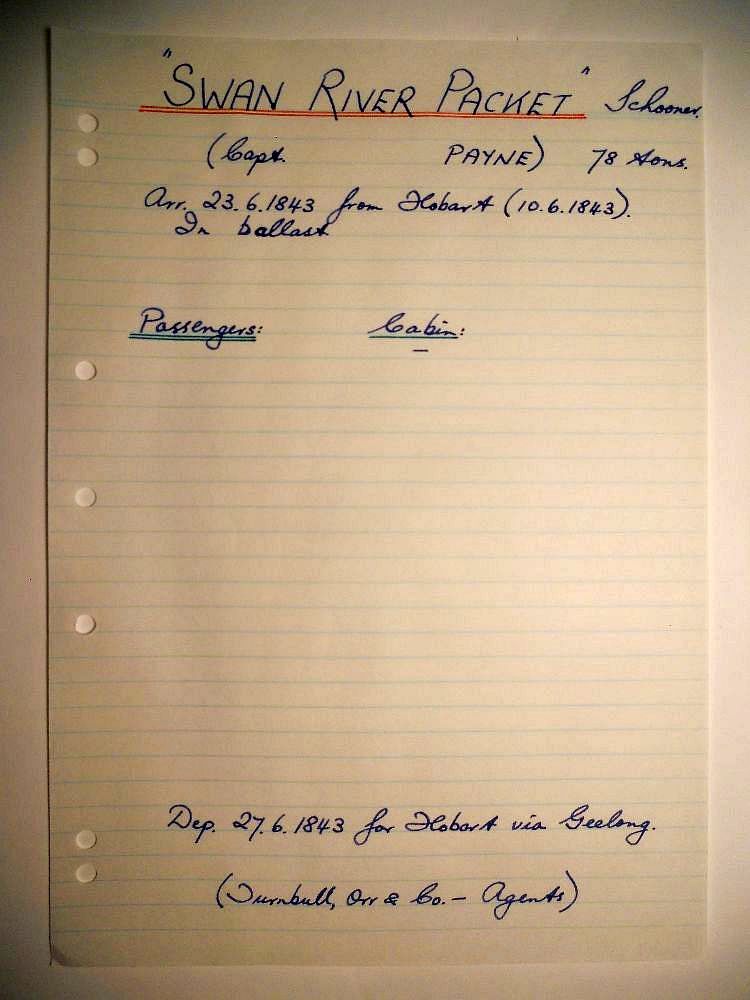 "SWAN RIVER PACKET" Schooner.
(Capt. PAYNE) 78 tons.
Arr. 23.6.1843 from Hobart (10.6.1843).
In ballast
Passengers: Cabin:
—
Dep. 27.6.1843 for Hobart via Geelong.
(Turnbull, Orr & Co. — Agents)